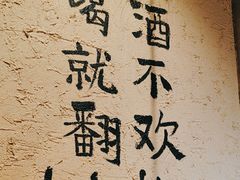 酒不欢
喝就翻